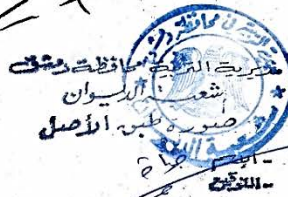 مديرية التربية بمحافظة دمشق
شعبة الديوان
صورة طبق الأصل
- الاسم
- التوقيع